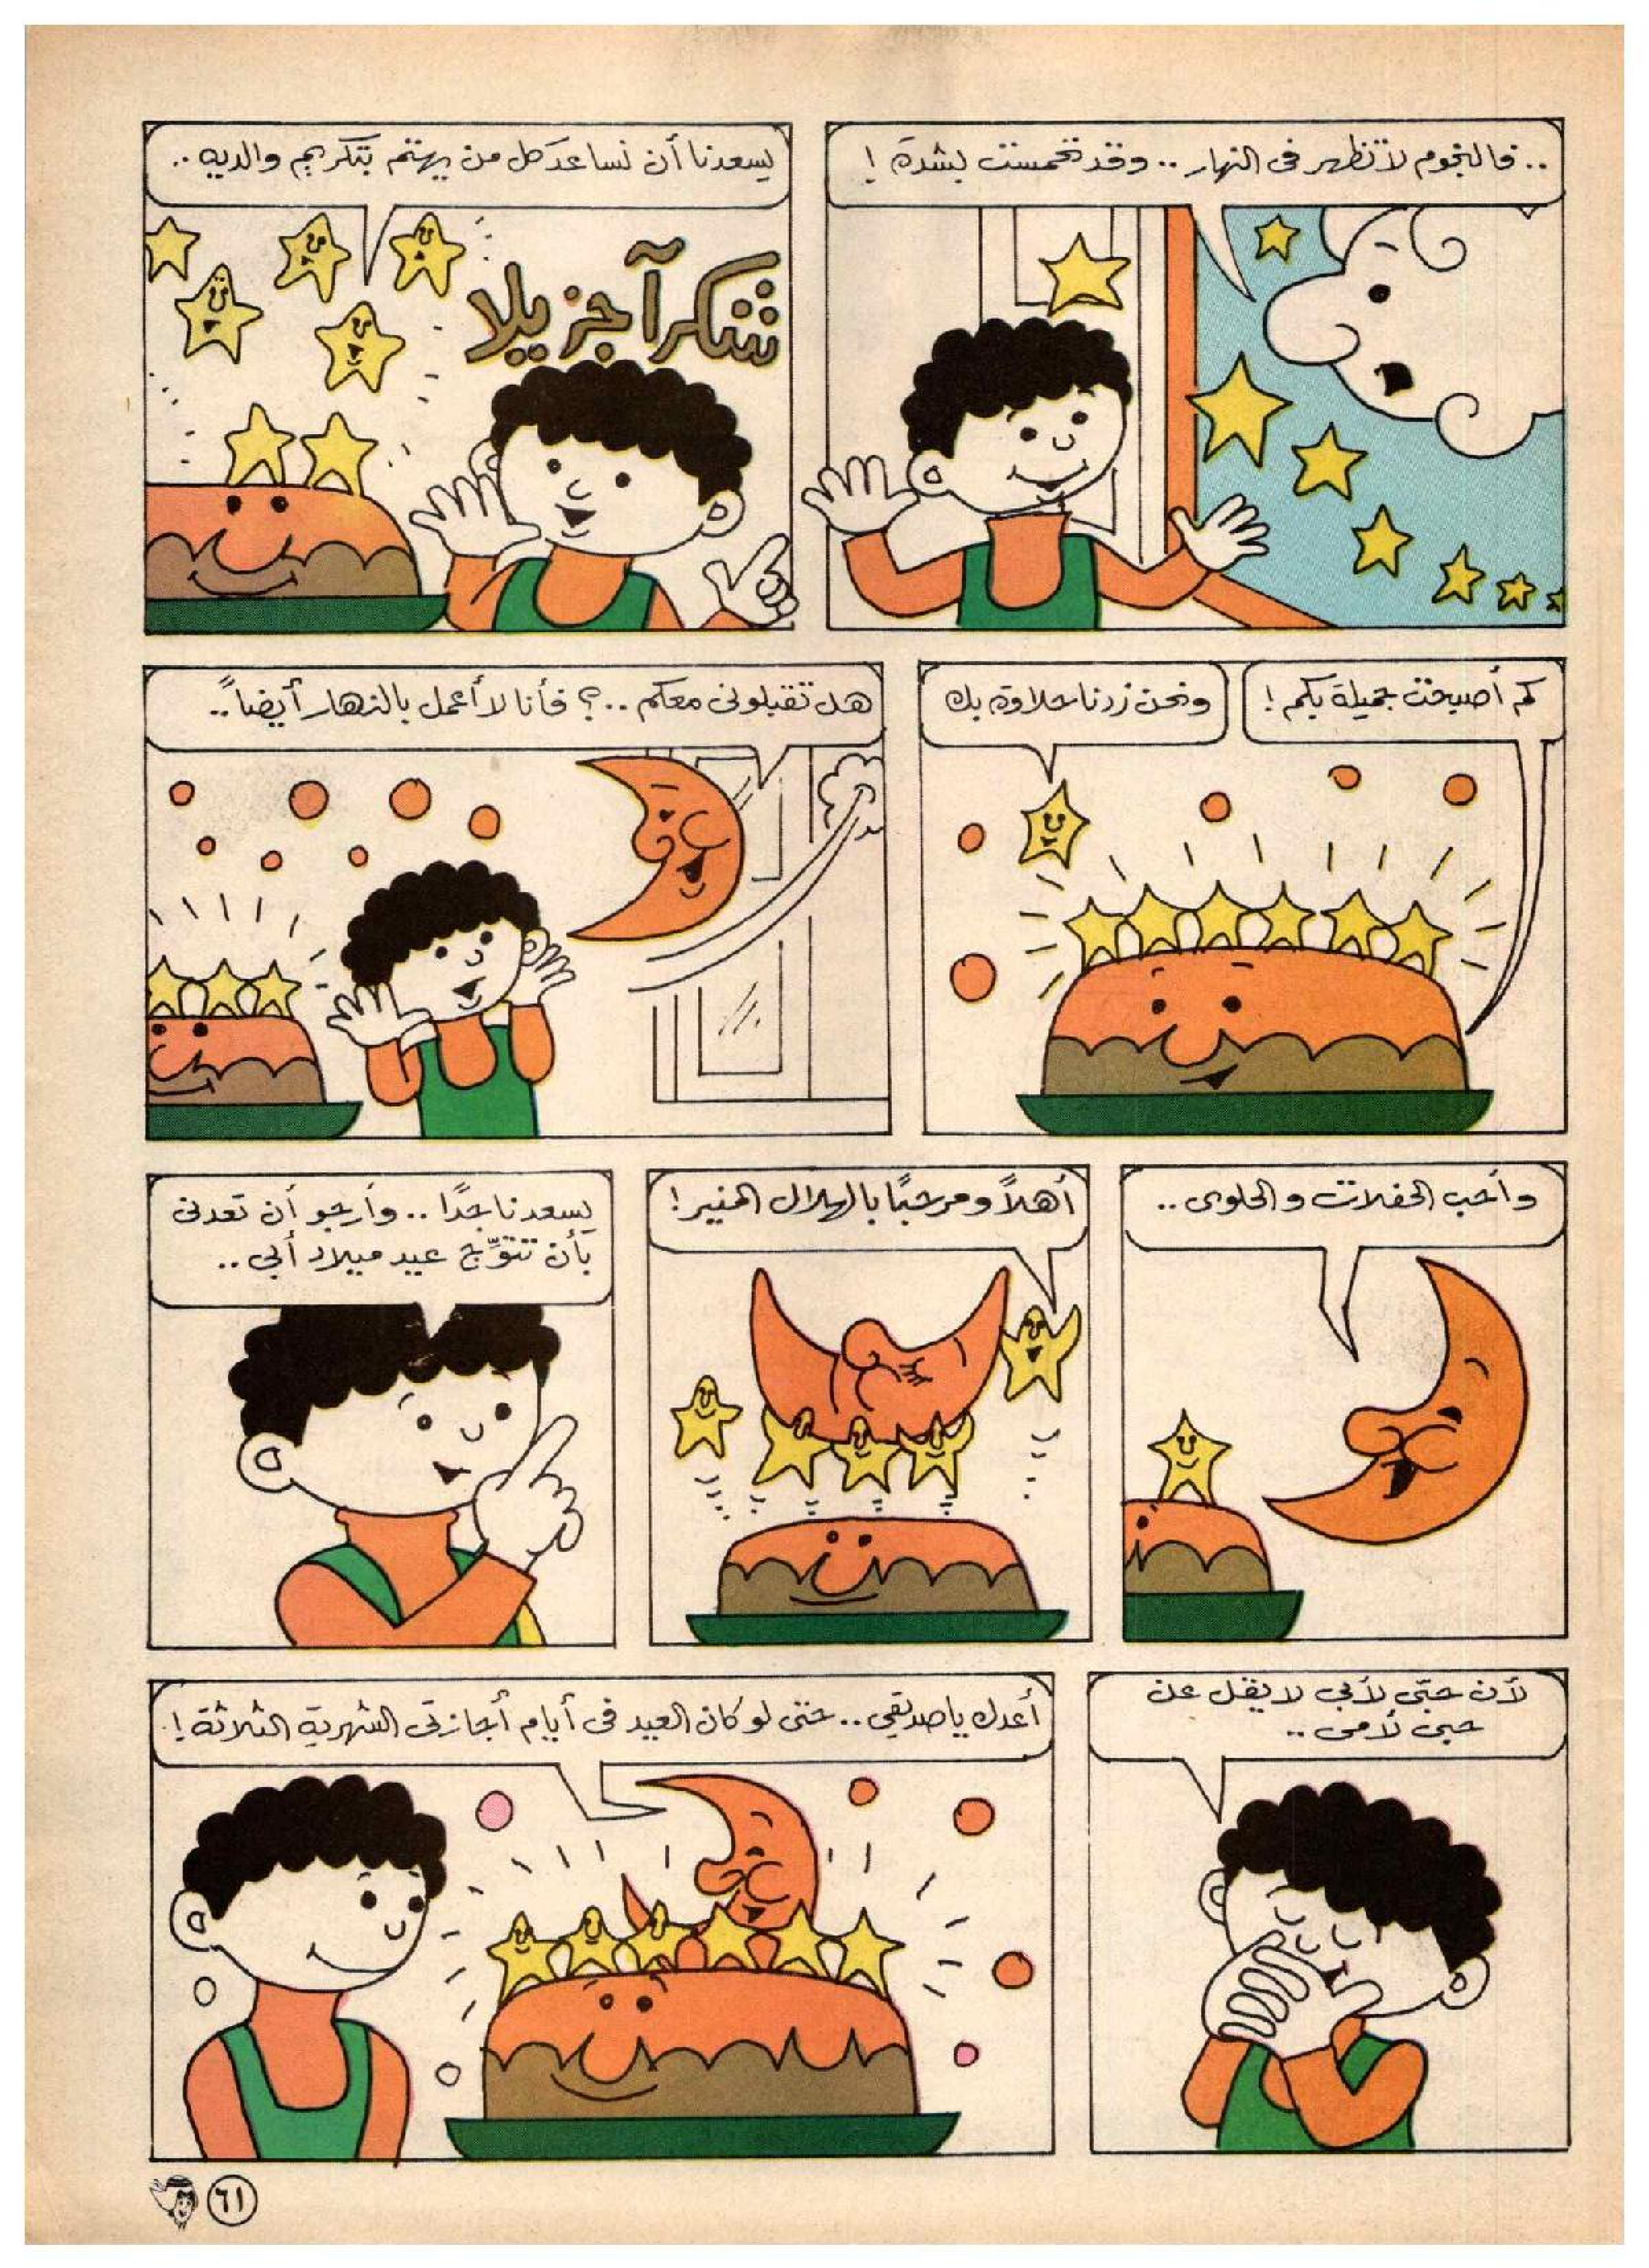 .. فالنجوم لا تظهر فى النهار .. وقد تحمست بشدة !
يسعدنا أن نساعد كل من يهتم بتكريم والديه ..
شكراً جزيلا
كم أصبحت جميلة بكم !
ونحن زدنا حلاوة بك
هل تقبلونى معكم ..؟ فأنا لا أعمل بالنهار أيضاً ..
وأحب الحفلات والحلوى ..
أهلاً ومرحبًا بالهلال المنير !
يسعدنا جدًا .. وأرجو أن تعدنى
بأن تتوّج عيد ميلاد أبي ..
لأن حبّي لأبي لا يقل عن
حبي لأمى ..
أعدك يا صديقي .. حتى لو كان العيد فى أيام أجازتى الشهرية الثلاثة !
٦١